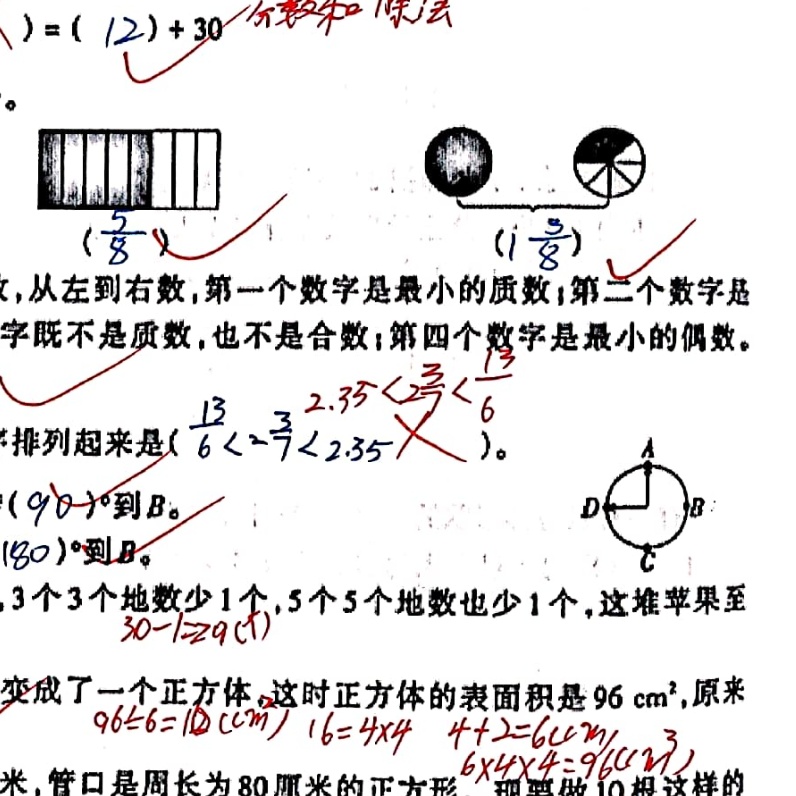 )=( 12 )+30 分数和除法
。
( 5/8 ) (1 3/8)
,从左到右数,第一个数字是最小的质数;第二个数字是
字既不是质数,也不是合数;第四个数字是最小的偶数。
2.35<2 3/7<13/6
排列起来是( 13/6<2 3/7<2.35 )。
A
(90)°到B。 D B
180)°到B。
C
,3个3个地数少1个,5个5个地数也少1个,这堆苹果至
30-1=29(个)
变成了一个正方体。这时正方体的表面积是96 cm²,原来
96÷6=16(cm²) 16=4×4 4+2=6(cm)
6×4×4=96(cm³)
米,管口是周长为80厘米的正方形。现要做10根这样的